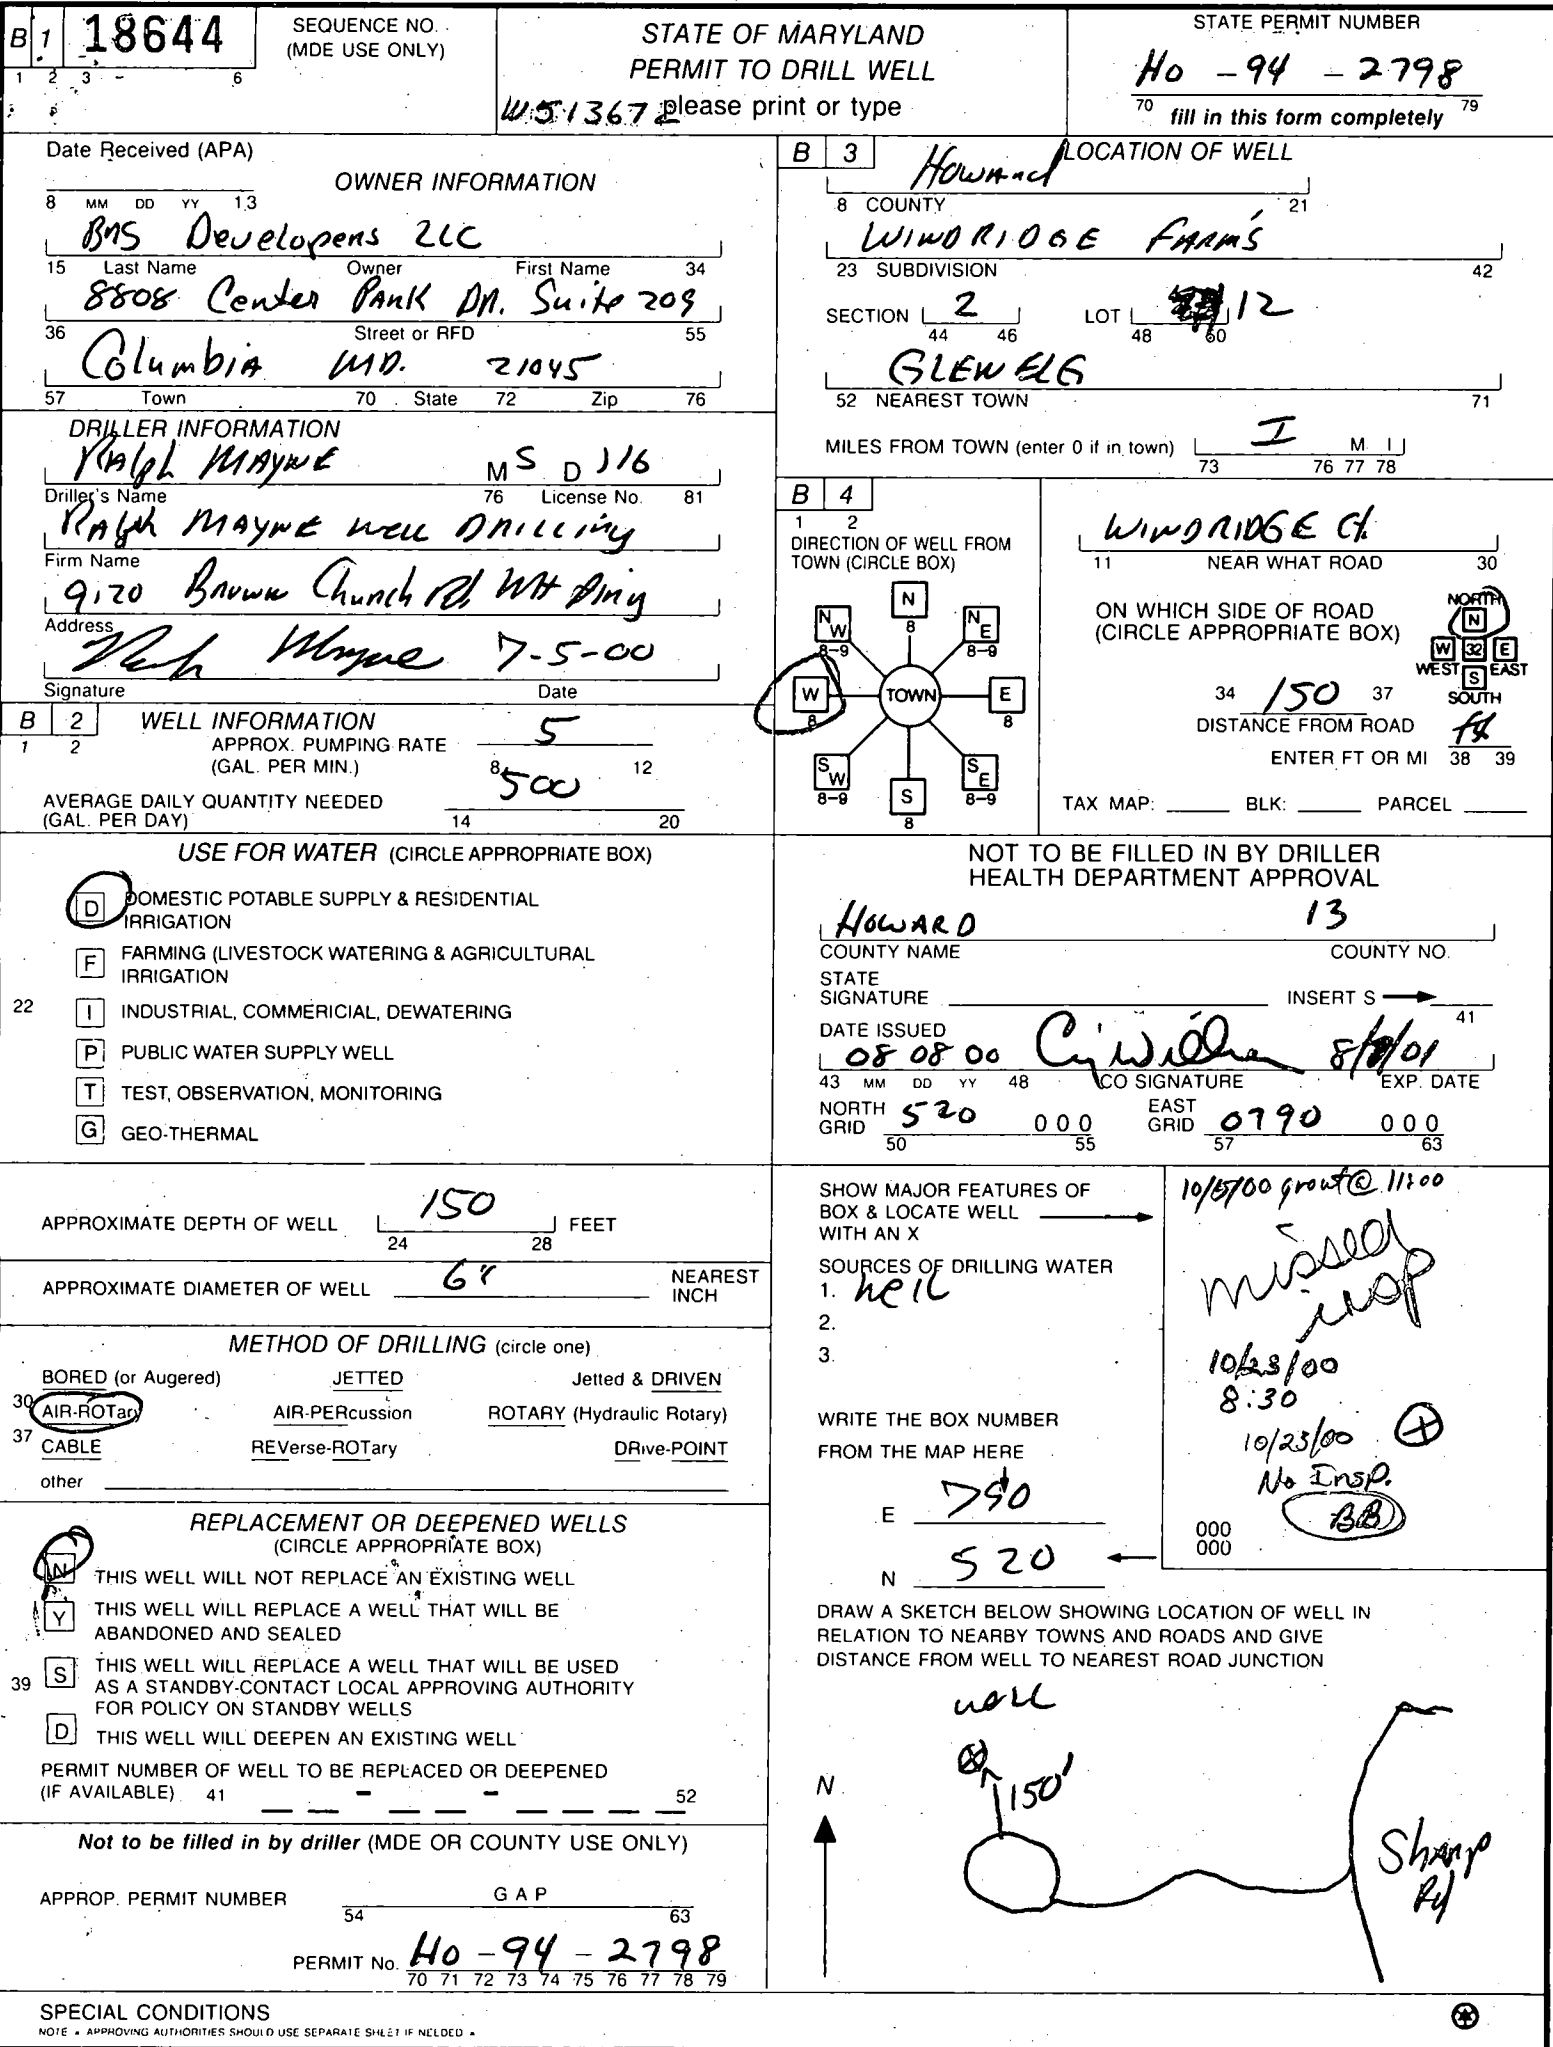 B 1 18644
1 2 3 6
SEQUENCE NO.
(MDE USE ONLY)
STATE OF MARYLAND
PERMIT TO DRILL WELL
W513672 please print or type
STATE PERMIT NUMBER
Ho - 94 - 2798
70 79
fill in this form completely
Date Received (APA)
8 MM DD YY 13
OWNER INFORMATION
BMS Developers LLC
15 Last Name Owner First Name 34
8808 Center Park Dr. Suite 209
36 Street or RFD 55
Columbia MD. 21045
57 Town 70 State 72 Zip 76
DRILLER INFORMATION
Ralph MAYNE M S D 116
Driller's Name 76 License No. 81
Ralph MAYNE well DRILLING
Firm Name
9120 Brown Church Rd Mt Airy
Address
Ralph Mayne 7-5-00
Signature Date
B 2 WELL INFORMATION
1 2
APPROX. PUMPING RATE 5
(GAL. PER MIN.) 8 12
AVERAGE DAILY QUANTITY NEEDED 500
(GAL. PER DAY) 14 20
USE FOR WATER (CIRCLE APPROPRIATE BOX)
D DOMESTIC POTABLE SUPPLY & RESIDENTIAL
IRRIGATION
F FARMING (LIVESTOCK WATERING & AGRICULTURAL
IRRIGATION
22 I INDUSTRIAL, COMMERICIAL, DEWATERING
P PUBLIC WATER SUPPLY WELL
T TEST, OBSERVATION, MONITORING
G GEO-THERMAL
APPROXIMATE DEPTH OF WELL 150 FEET
24 28
APPROXIMATE DIAMETER OF WELL 6" NEAREST
INCH
METHOD OF DRILLING (circle one)
BORED (or Augered) JETTED Jetted & DRIVEN
30 AIR-ROTary AIR-PERcussion ROTARY (Hydraulic Rotary)
37 CABLE REVerse-ROTary DRive-POINT
other
REPLACEMENT OR DEEPENED WELLS
(CIRCLE APPROPRIATE BOX)
N THIS WELL WILL NOT REPLACE AN EXISTING WELL
Y THIS WELL WILL REPLACE A WELL THAT WILL BE
ABANDONED AND SEALED
39 S THIS WELL WILL REPLACE A WELL THAT WILL BE USED
AS A STANDBY-CONTACT LOCAL APPROVING AUTHORITY
FOR POLICY ON STANDBY WELLS
D THIS WELL WILL DEEPEN AN EXISTING WELL
PERMIT NUMBER OF WELL TO BE REPLACED OR DEEPENED
(IF AVAILABLE) 41 - - 52
Not to be filled in by driller (MDE OR COUNTY USE ONLY)
APPROP. PERMIT NUMBER G A P
54 63
PERMIT No. Ho - 94 - 2798
70 71 72 73 74 75 76 77 78 79
SPECIAL CONDITIONS
NOTE - APPROVING AUTHORITIES SHOULD USE SEPARATE SHEET IF NEEDED -
B 3 LOCATION OF WELL
Howard
8 COUNTY 21
WINDRIDGE FARMS
23 SUBDIVISION 42
SECTION 2 LOT 12
44 46 48 60
GLENELG
52 NEAREST TOWN 71
MILES FROM TOWN (enter 0 if in town) I M I
73 76 77 78
B 4
1 2
DIRECTION OF WELL FROM
TOWN (CIRCLE BOX)
N
8
NW NE
8-9 8-9
W TOWN E
8 8
SW SE
8-9 8-9
S
8
WINDRIDGE Ct.
11 NEAR WHAT ROAD 30
ON WHICH SIDE OF ROAD
(CIRCLE APPROPRIATE BOX)
NORTH
N
W 32 E
WEST S EAST
SOUTH
34 150 37
DISTANCE FROM ROAD
ft
ENTER FT OR MI 38 39
TAX MAP: BLK: PARCEL
NOT TO BE FILLED IN BY DRILLER
HEALTH DEPARTMENT APPROVAL
HOWARD 13
COUNTY NAME COUNTY NO.
STATE
SIGNATURE INSERT S
41
DATE ISSUED
08 08 00 8/8/01
43 MM DD YY 48 CO SIGNATURE EXP. DATE
NORTH
GRID 520 000
50 55
EAST
GRID 0790 000
57 63
SHOW MAJOR FEATURES OF
BOX & LOCATE WELL
WITH AN X
SOURCES OF DRILLING WATER
1. well
2.
3.
WRITE THE BOX NUMBER
FROM THE MAP HERE
E 790
N 520
grout @ 11:00
missed
insp
10/23/00
8:30
10/23/00
No Insp.
BB
000
000
DRAW A SKETCH BELOW SHOWING LOCATION OF WELL IN
RELATION TO NEARBY TOWNS AND ROADS AND GIVE
DISTANCE FROM WELL TO NEAREST ROAD JUNCTION
well
150'
N
Sharp
Rd